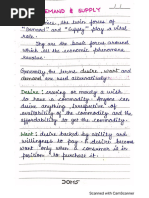 DEMAND & SUPPLY
1
the twin forces of
"Demand" and "Supply" play a vital
role.
They are the basic forces around
which all the economic phenomena
revolve.
Generally the terms desire, want and
demand are used
Desire: craving or merely a wish
to have a commodity. Anyone can
desire anything irrespective of
availability of the commodity and the
affordability to get the commodity.
Want: desire backed by ability and
willingness to pay. Desire become
want only when a consumer is in
position to purchase it.
Scanned with CamScanner